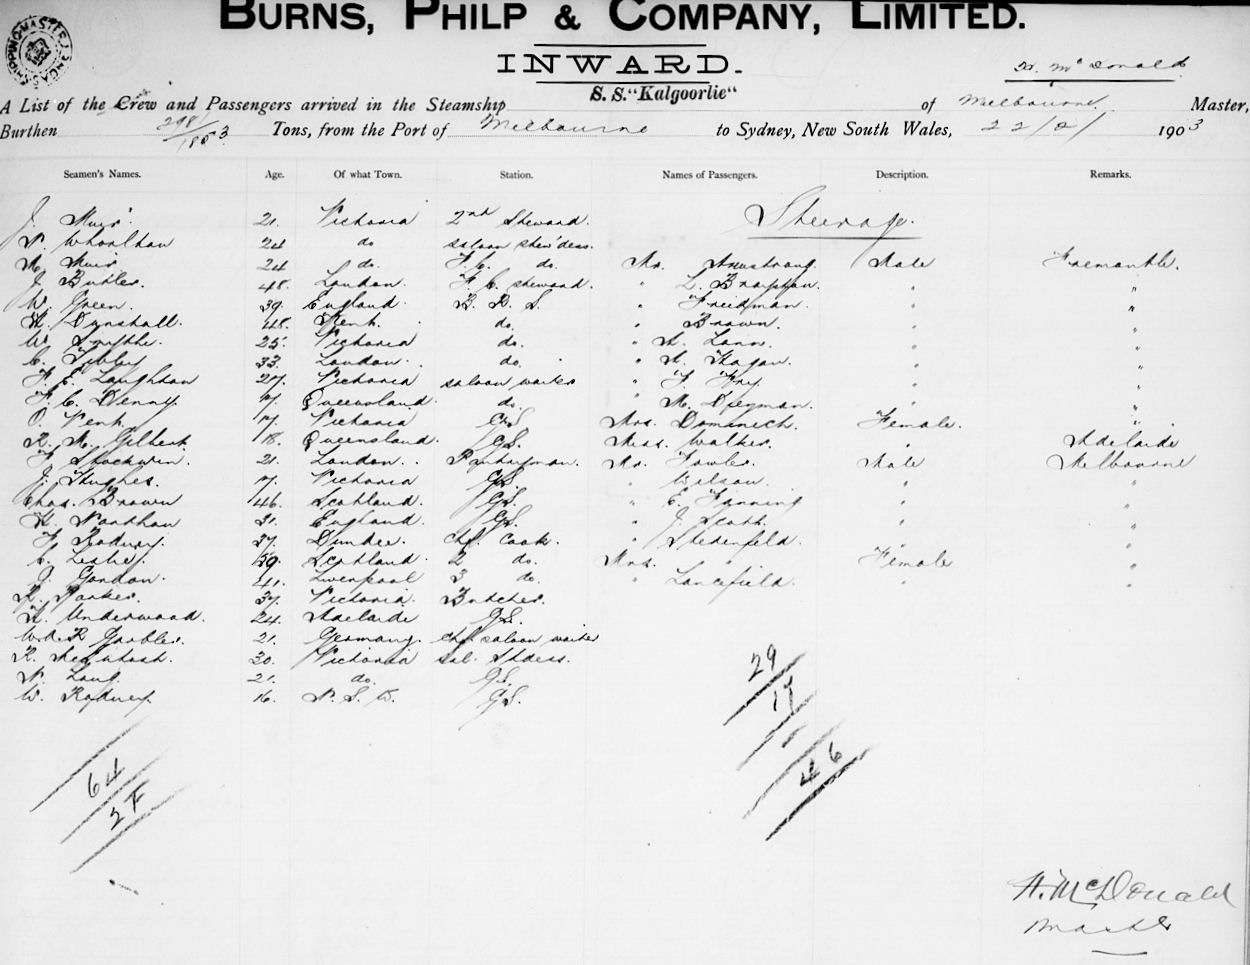 BURNS, PHILP & COMPANY, LIMITED.
INWARD.
H. McDonald
S. S. "Kalgoorlie"
A List of the Crew and Passengers arrived in the Steamship of Melbourne Master,
Burthen Tons, from the Port of Melbourne to Sydney, New South Wales, 22/2/ 1903
Seamen's Names. Age. Of what Town. Station. Names of Passengers. Description. Remarks.
J. Muir 21. Victoria 2nd Steward. Steerage.
24 do saloon stew'dess.
M. Muir 24 do. F. C. do. Mr. Armstrong Male Fremantle.
J. Butler. 48. London. F. C. steward. " " "
W. Green. 39. England. B. R. S. " Freidman. " "
48. Kent. do. " Brown. " "
W. 25. Victoria do. " " "
C. Sibley 33. London. do. " A. Hagan. " "
F. E. Laughton 27. Victoria saloon waiter " F. Fry. " "
F. C. Denny 17. Queensland. do. " M. " "
O. Kent. 17. Victoria G.S. Mrs. Domenich. Female. "
R. M. Gilbert 18. Queensland. G.S. Miss. Walker. " Adelaide
F. Stockwin. 21. London. Pantryman. Mr. Fowler. Male Melbourne
J. Hughes. 17. Victoria G.S. " Wilson. " "
Chas. Brown 46. Scotland. G.S. " E. Fanning " "
H. 31. England. G.S. " J. Scott. " "
F. 37. Dundee. chf. cook. " " "
C. Leslie. 59. Scotland. 2 do. Mrs. " Female "
J. Gordon. 41. Liverpool 3 do. " Lancefield. " "
R. Parkes. 37. Victoria. Butcher.
H. Underwood. 24. Adelaide G.S.
21. Germany. chf. saloon waiter
R. McIntosh. 30. Victoria sal. Stdess.
N. Lang 21. do. G.S.
W. Rodney 16. N. S. W. G.S.
29
17
46
64
27
H. McDonald
Master